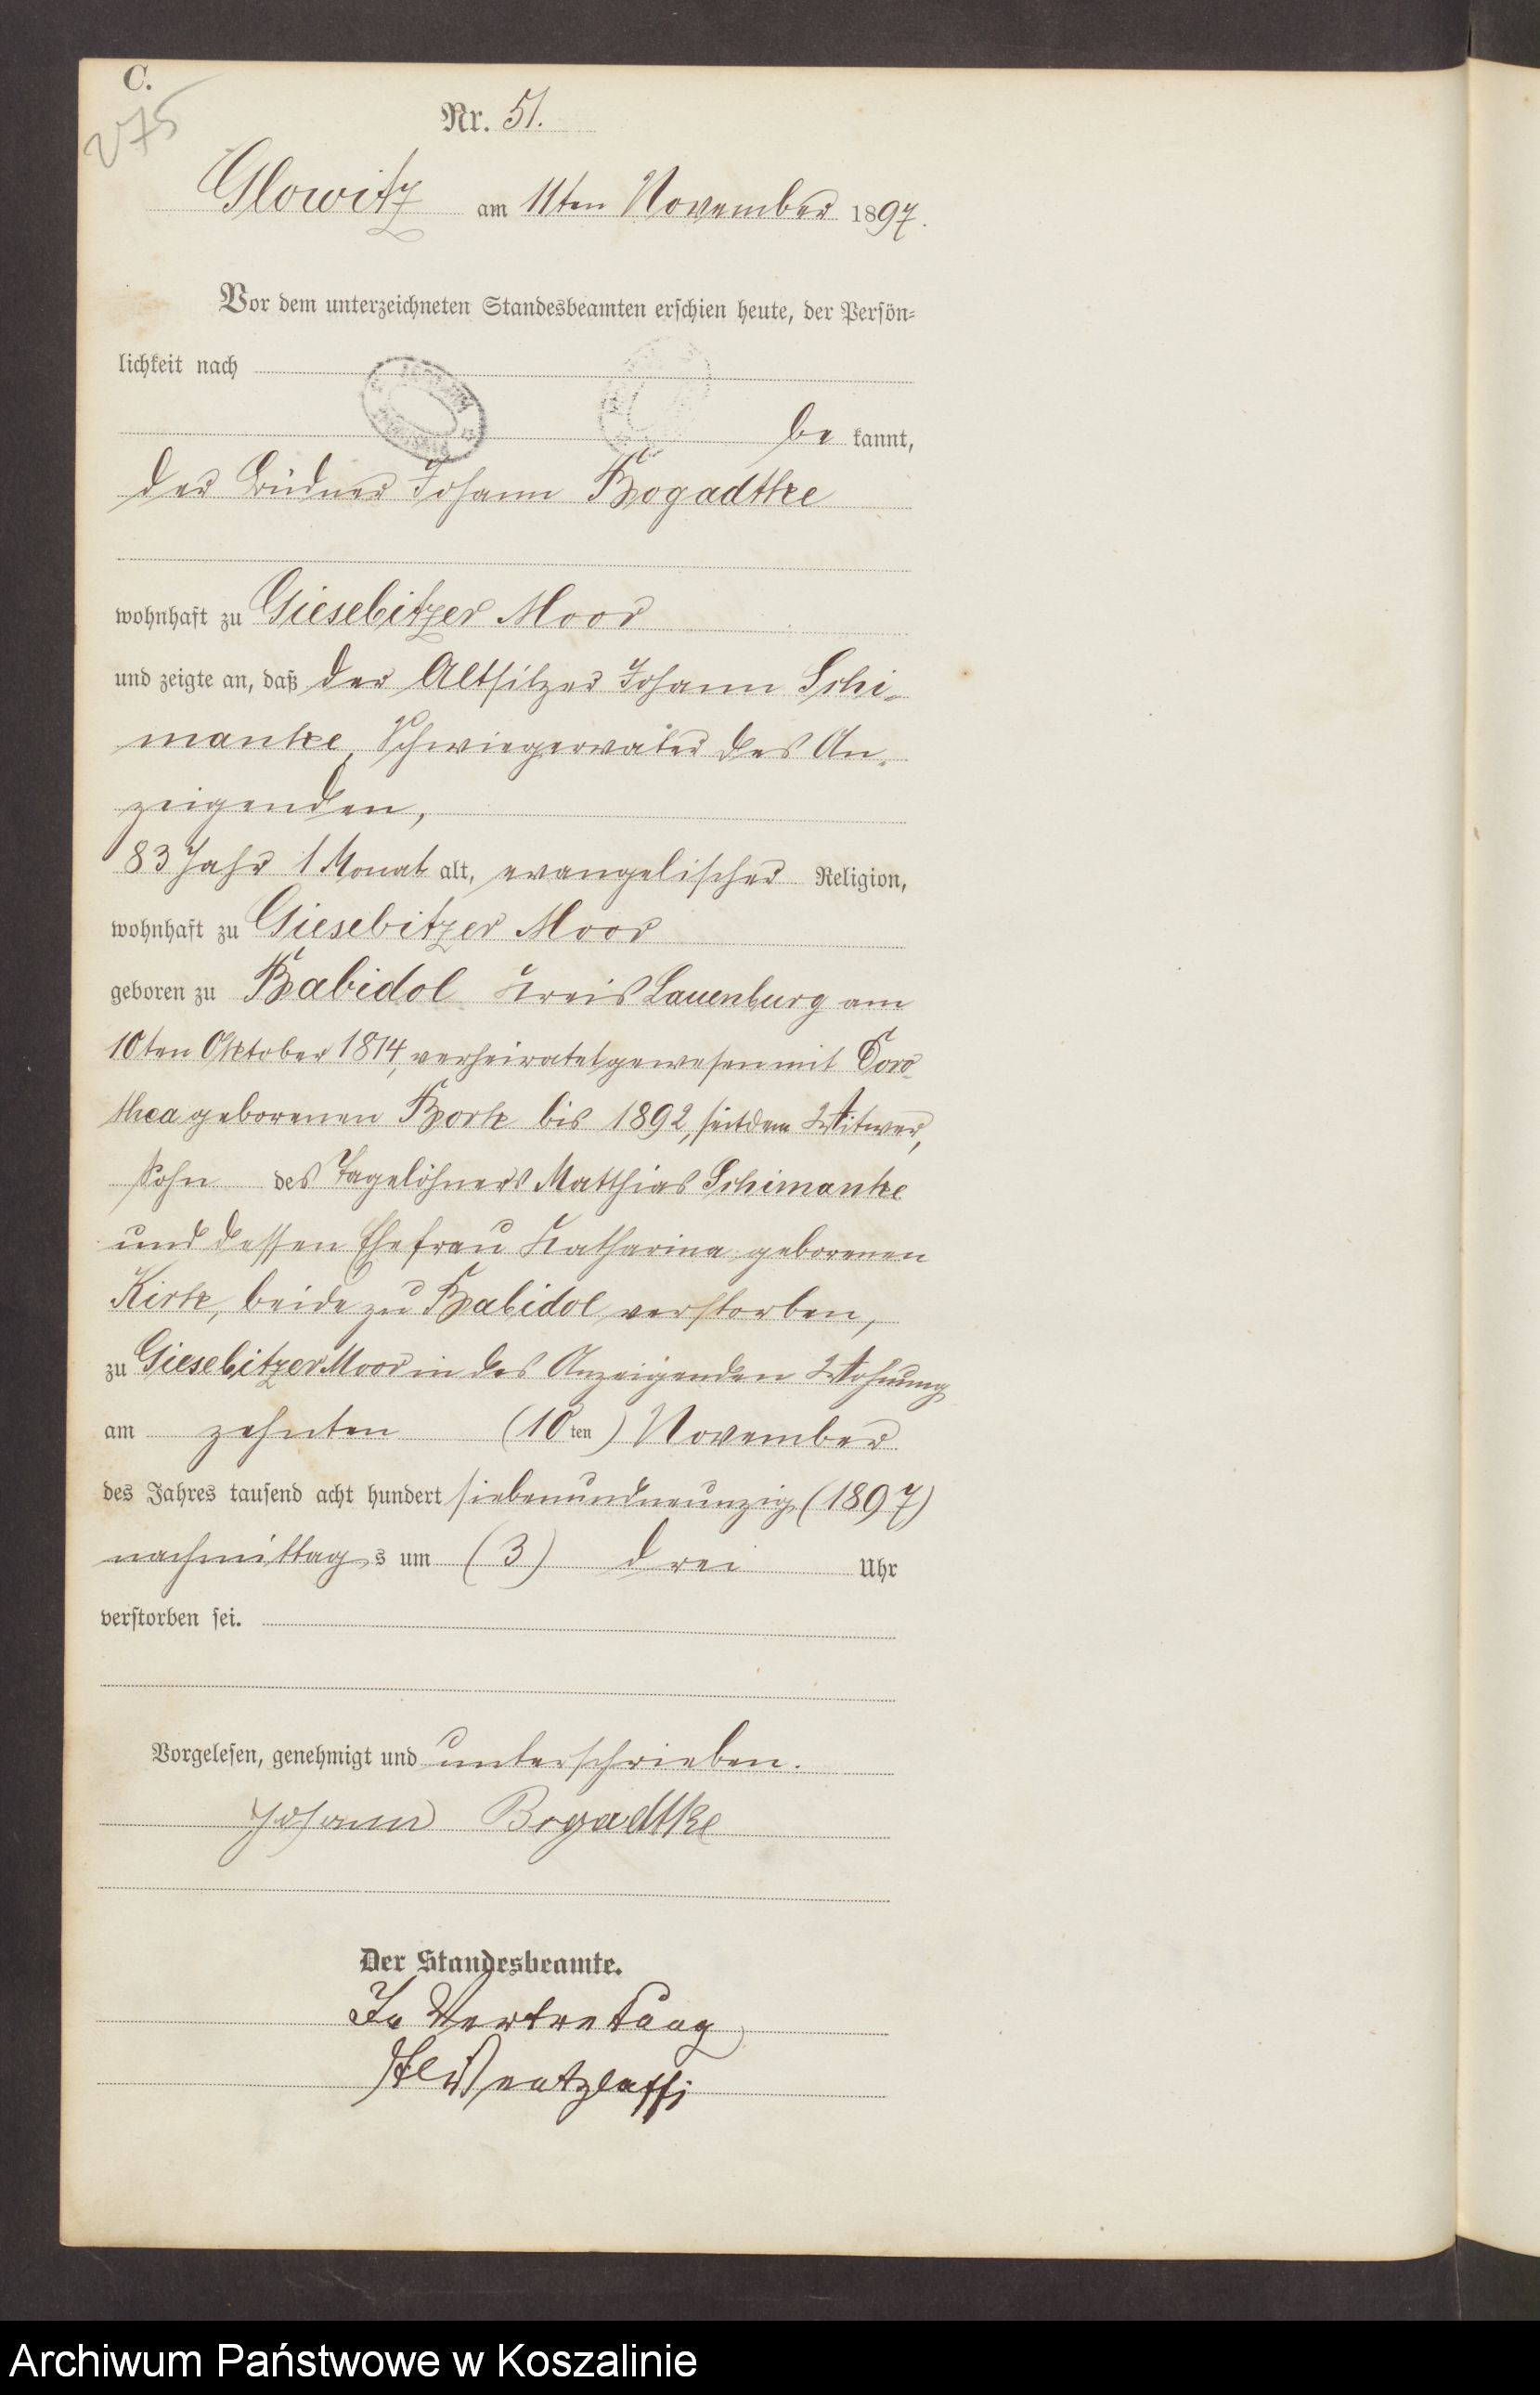 C.
275
Nr. 51.
Glowitz am 11ten November 1897.
Vor dem unterzeichneten Standesbeamten erschien heute, der Persön=
lichkeit nach
be kannt,
der Büdner Johann Bogadtke
wohnhaft zu Giesebitzer Moor
und zeigte an, daß der Altsitzer Johann Schi-
manke, Schwiegervater des An-
zeigenden,
83 Jahr 1 Monat alt, evangelischer Religion,
wohnhaft zu Giesebitzer Moor
geboren zu Babidol Kreis Lauenburg am
10ten Oktober 1814, verheiratet gewesen mit Doro-
thea geborenen Bork bis 1892, seitdem Witwer,
Sohn des Tagelöhners Matthias Schimanke
und dessen Ehefrau Katharina geborenen
Kirk, beide zu Babidol verstorben,
zu Giesebitzer Moor in des Anzeigenden Wohnung
am zehnten (10ten) November
des Jahres tausend acht hundert siebenundneunzig (1897)
nachmittags um (3) drei Uhr
verstorben sei.
Vorgelesen, genehmigt und unterschrieben.
Johann Bogadtke
Der Standesbeamte.
In Vertretung
Archiwum Państwowe w Koszalinie